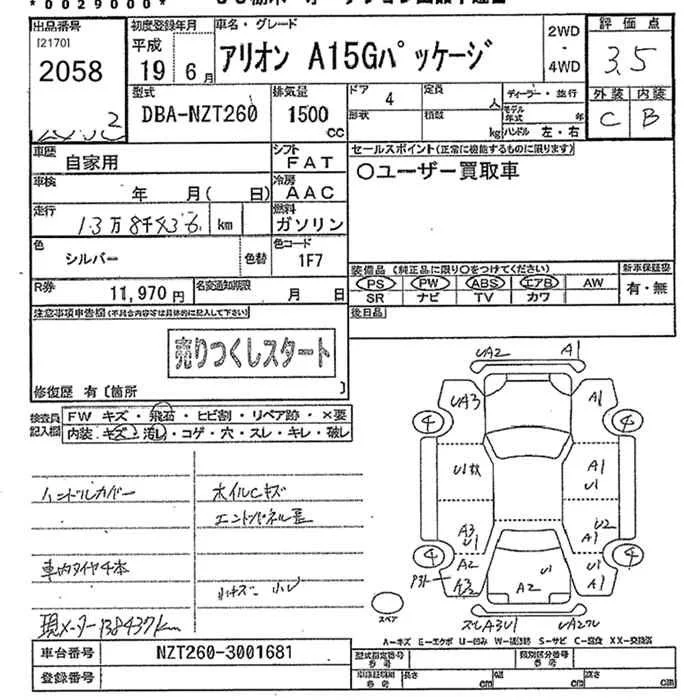 *0029000*
出品番号 [2170] 2058
初度登録年月 平成 19 6月
車名・グレード アリオン A15Gパッケージ
2WD・4WD
評価点 3.5
外装 C 内装 B
型式 DBA-NZT260
排気量 1500cc
ドア 4
形状
定員 人
積載 kg
ディーラー・並行
モデル年式 年
ハンドル 左・右
車歴 自家用
シフト FAT
車検 年 月( 日)
冷房 AAC
走行 13万8千436 km
燃料 ガソリン
色 シルバー 色替
色コード 1F7
R券 11,970円
名変通知期限 月 日
セールスポイント(正常に機能するものに限ります)
〇ユーザー買取車
装備品(純正品に限り〇をつけてください)
PS PW ABS エアB AW
SR ナビ TV カワ
新車保証書 有・無
後日品
注意事項申告欄(不具合内容等は具体的に記入して下さい)
売りつくしスタート
修復歴 有〔箇所 〕
検査員記入欄
FW キズ・飛石・ヒビ割・リペア跡・×要
内装 キズ・汚し・コゲ・穴・スレ・キレ・破レ
ハンドルカバー
ホイルCキズ
エンドパネル歪
車内タイヤ4本
現メーター138437km
UA2 A1
UA3 A1
4 4
A1
U1
A3
U1
U2
A1
A2
U1
A1
U1
A2
4 4
スペア
A-キズ E-エクボ U-凹み W-補修跡 S-サビ C-腐食 XX-交換済
車台番号 NZT260-3001681
登録番号
型式指定番号
類別区分番号
長さ cm 幅 cm 高さ cm